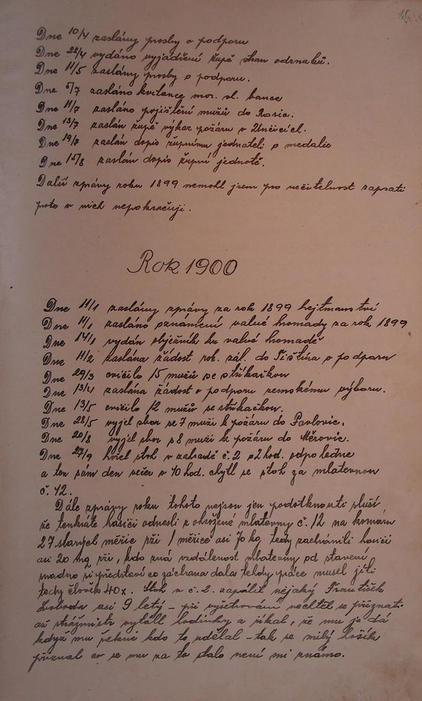 Dne 10/4 zaslány prosby o podporu
Dne 22/4 vydáno vyjádření župě stran odznaků.
Dne 11/5 zaslány prosby o podporu.
Dne 5/7 zaslána kvitance mor. sl. bance
Dne 11/7 zasláno pojištění mužů do Rosic.
Dne 13/7 zaslán župě výkaz požáru v
Dne 19/8 zaslán dopis župnímu jednateli o medalie
Dne 15/8 zaslán dopis župní jednotě.
Další zprávy roku 1899 nemohl jsem pro nečitelnost zapsati
proto v nich nepokračuji.
Rok 1900
Dne 11/1 zaslány zprávy za rok 1899 hejtmanství
Dne 11/1 zasláno oznámení valné hromady za rok 1899
Dne 14/1 vydán oběžník ku valné hromadě
Dne 11/2 zaslána žádost rol. zál. do o podporu
Dne 29/3 cvičilo 15 mužů se stříkačkou
Dne 13/4 zaslána žádost o podporu zemskému výboru.
Dne 13/5 cvičilo 12 mužů se stříkačkou.
Dne 28/5 vyjel sbor se 7 muži k požáru do Pavlovic.
Dne 20/8 vyjel sbor s 8 muži k požáru do Měrovic.
Dne 27/9 hořel stoh v zahradě č. 2 o 2 hod. odpoledne
a ten samý den večer v 10 hod. chytl se stoh za mlatevnou
č. 42.
Dále zprávy roku tohoto nejsou jen podotknouti sluší
že tenkráte hasiči odnesli z ohrožené mlatevny č. 12 na komáru
27 starých měřic při 1 měřice asi 70 kg tedy zachránili hasiči
asi 20 mq při, kdo zná vzdálenost mlatevny od stavení
snadno si představí co záchrana dala tehdy práce musel jíti
tedy člověk 40x. Stoh v č. 2. zapálil nějaký Frantíšek
Svoboda asi 9 letý – při vyšetřování nechtěl se přiznati
až strážmistr vytáhl hodinky a říkal, že mu je dá
když mu řekne kdo to udělal – tak se milý hošík
přiznal co se mu za to stalo není mi známo.